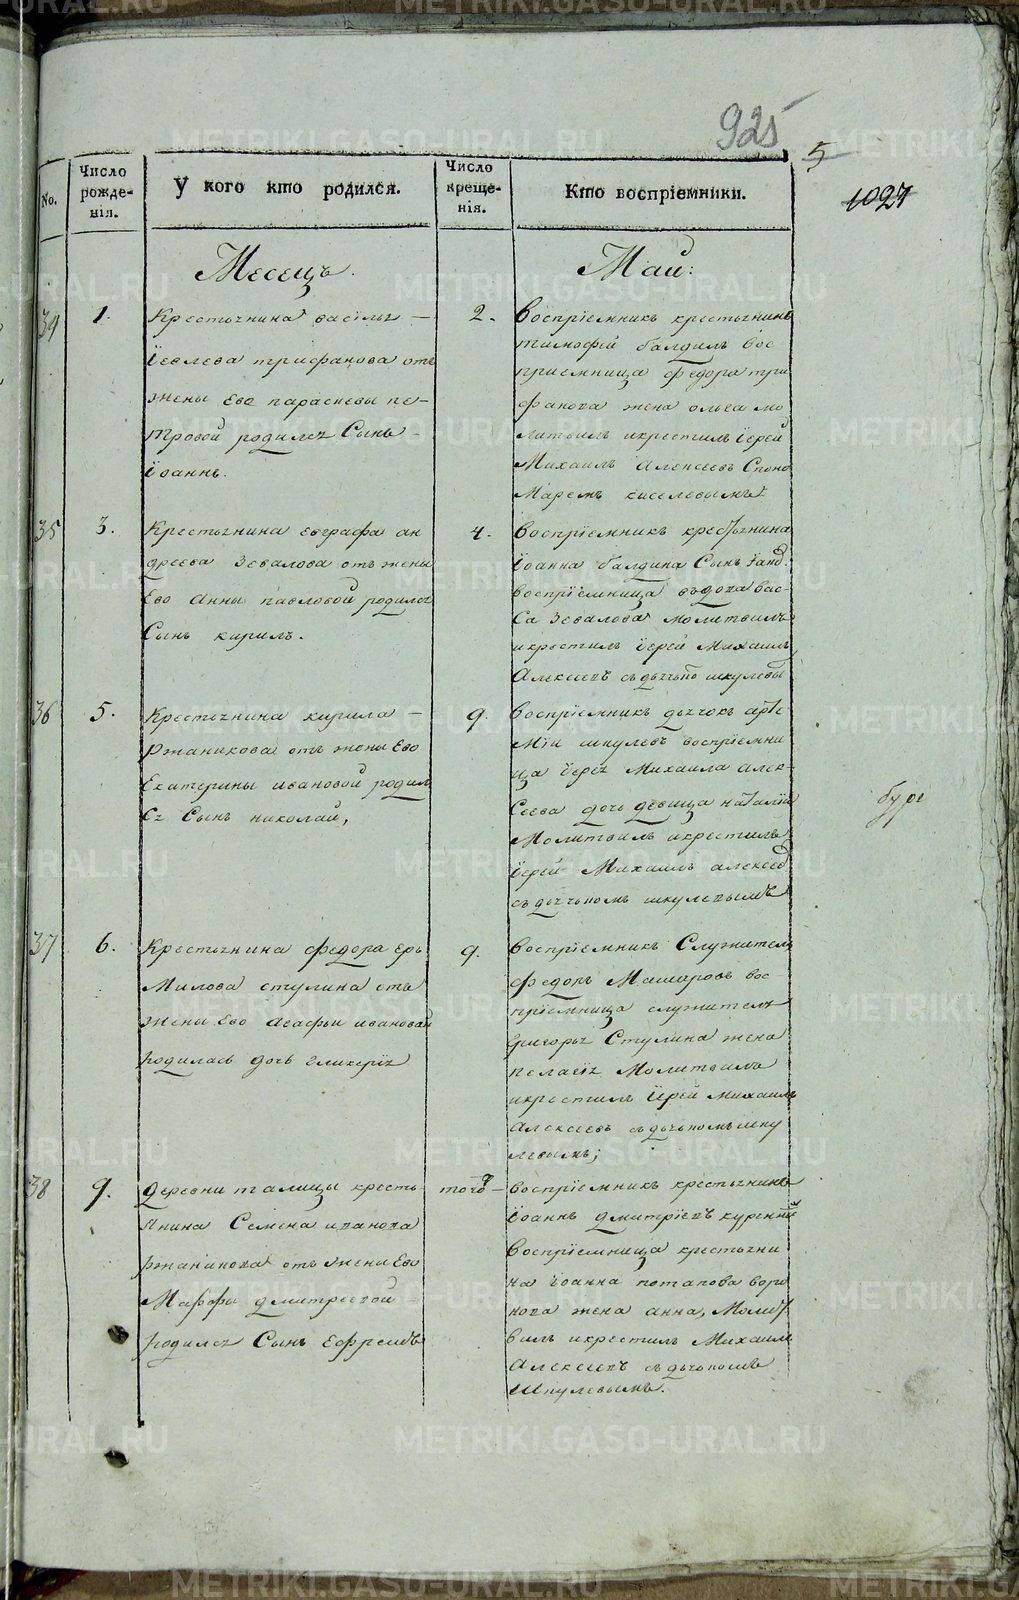 925
5
1027
No.
Число рожде-нія.
У кого кто родился.
Число креще-нія.
Кто воспріемники.
Месецъ.
Маій:
1.
Крестьянина василья –
Їевлева трифанова отъ
жены Ево параскевы пе-
тровой родился Сынъ –
Їоаннъ.
2.
Воспріемникъ крестьянинъ
тимофей балдинъ вос
приемница федора три
фанова жена ольга мо
литвилъ икрестилъ Їерей
Михаилъ Алексеевъ Споно
Маремъ киселевымъ
35
3.
Крестьянина евграфа ан
дреева Зевалова отъ жены
Ево Анны павловой родился
Сынъ кирилъ.
4.
Воспріемникъ крестьянина
Їоанна балдина Сынъ
воспріемница вдова вас-
са Зевалова молитвилъ
икрестилъ Їерей Михаилъ
Алексеевъ съ дьячьком шкулевы
36
5.
Крестьянина кирила –
ржаникова отъ жены Ево
Екатерины ивановой родил
ся Сынъ николай,
9.
Воспріемникъ дьячокъ арте
мїи шкулевъ воспріемни
ца Їерея Михаила алек-
Сеева дочь девица наталия
Молитвилъ икрестилъ
Їерей Михаилъ алексеев
съ дьячькомъ шкулевымъ
37
6.
Крестьянина федора ерь
милова стулина отъ
жены Ево агафьи ивановай
родилась дочь гликерїя
9.
Воспріемникъ Служитель
федоръ Машаровъ вос
прїемница служителя
григорья Стулина жена
пелагїя Молитвилъ
икрестилъ Їерей Михаилъ
Алексеевъ съ дьячькомъ шку
левымъ;
38
9.
Деревни талицы кресть
янина Семена иванова
ржаникова отъ жены Ево
Марфы дмитреевой –
родился Сынъ Ефремъ
того –
Воспріемникъ крестьянинъ
Їоаннъ дмитріевъ
Воспріемница крестьяни
на Їоанна потапова
жена анна, Молит
вилъ икрестилъ Михаилъ
Алексеевъ съ дьячькомъ
Шкулевымъ.